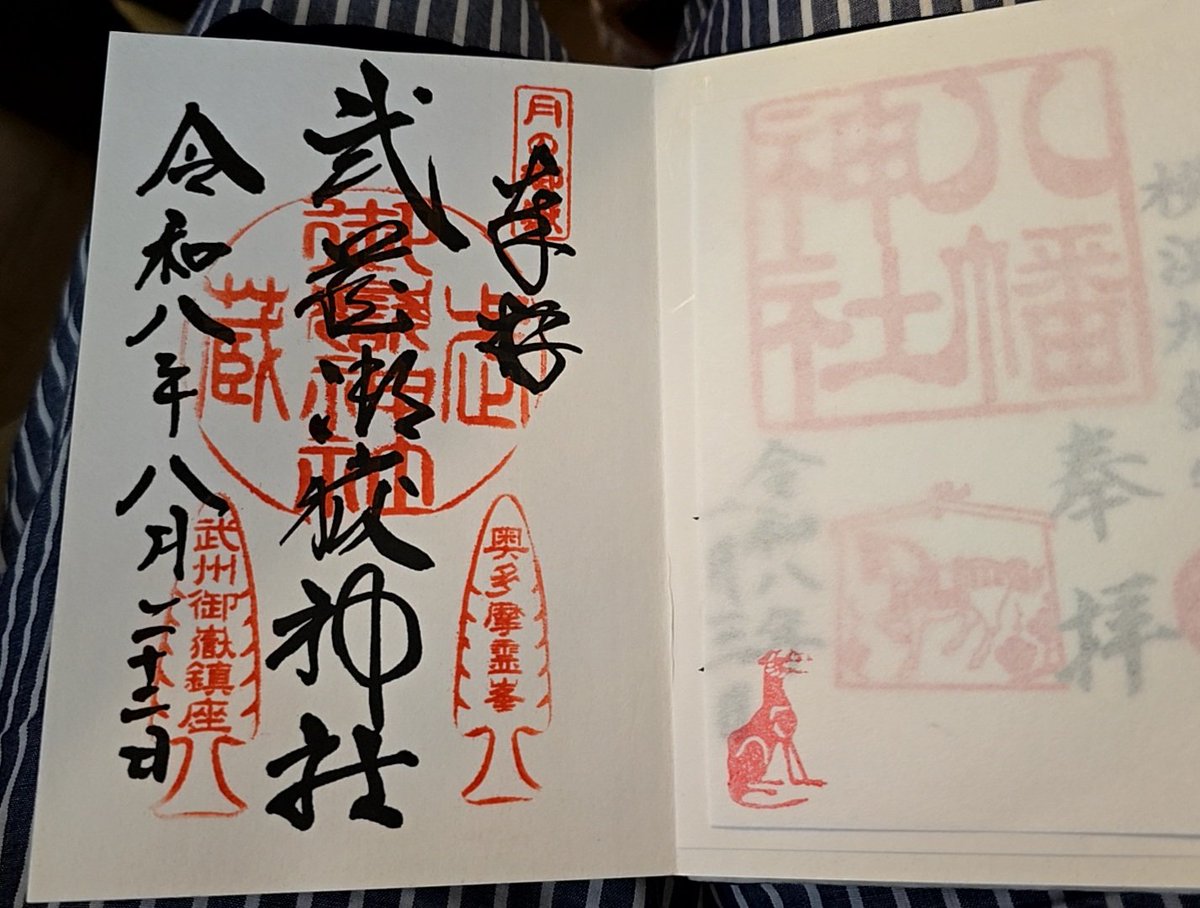 奉拝
八幡神社
令和八年
奉拝
武蔵御嶽神社
令和八年八月二十二日
武蔵御嶽神社
奥多摩霊峯
武州御嶽鎮座